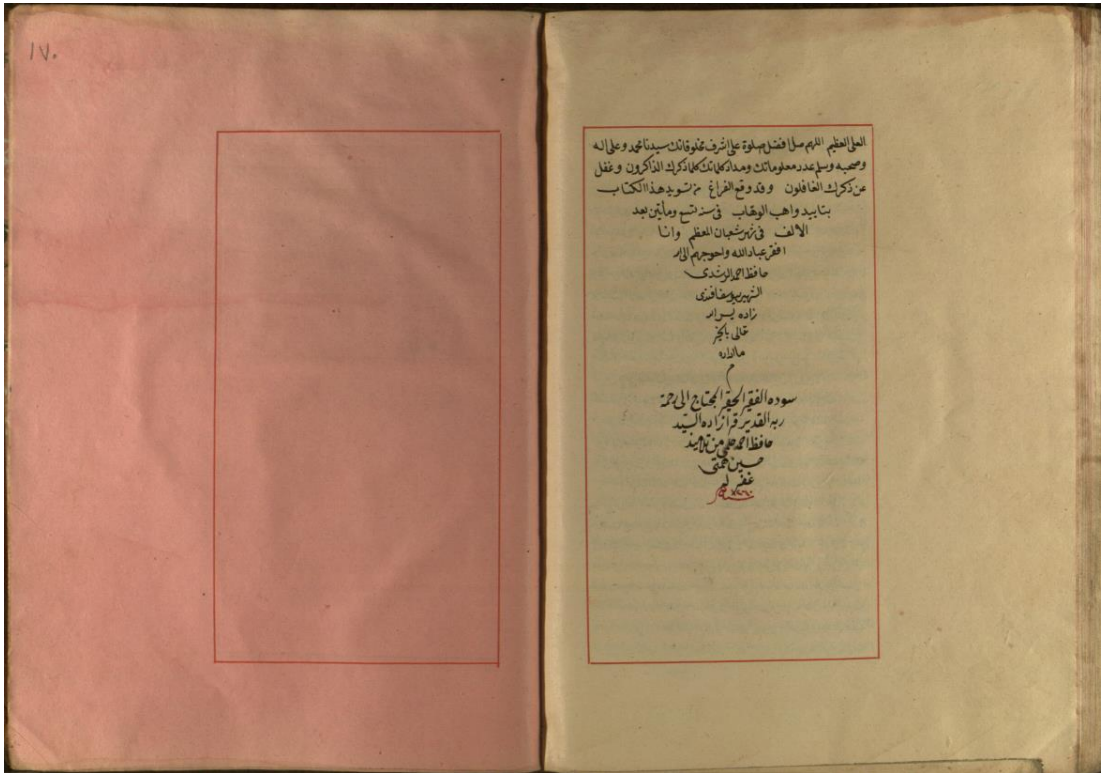 العلى العظيم اللهم صل افضل صلوة على اشرف مخلوقاتك سيدنا محمد وعلى اله
وصحبه وسلم عدد معلوماتك ومداد كلماتك كلما ذكرك الذاكرون وغفل
عن ذكرك الغافلون وقد وقع الفراغ من تسويد هذا الكتاب
بتاييد واهب الوهاب فى سنه تسع ومأتين بعد
الالف فى شهر شعبان المعظم وانا
افقر عباد الله واحوجهم اليه
حافظ احمد الرشدى
الشهير بيوسف افندى
زاده يسر الله
تمالى بالخير
ما اراده
م
سوده الفقير الحقير المحتاج الى رحمة
ربه القدير قرا زاده السيد
حافظ احمد حلمى من تلاميذ
حسين همتى
غفر له
١٢٦٠
١٧٠